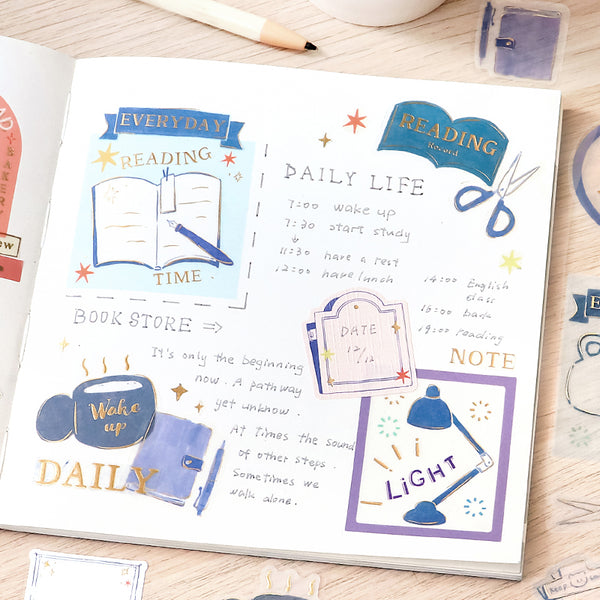 EVERYDAY
READING
TIME
READING
Record
DAILY LIFE
7:00 wake up
7:30 start study
11:30 have a rest
12:00 have lunch
14:00 English
class
19:00 reading
BOOK STORE ⇒
It's only the beginning
now. A pathway
yet unknow.
At times the sound
of other steps.
Sometimes we
walk alone.
DATE
12/12
NOTE
LiGHT
Wake
up
DAILY
BAKERY